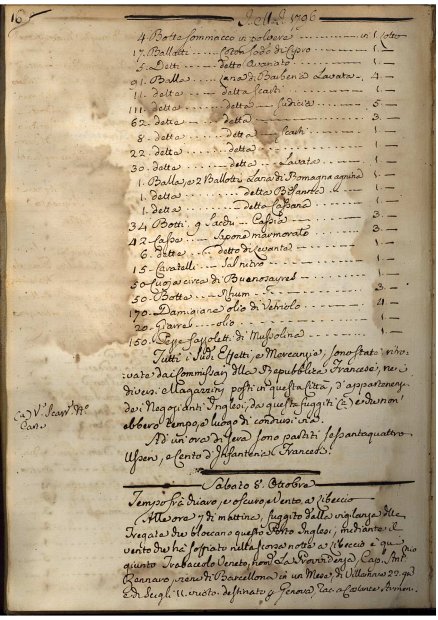 16
Dell'A. 1796
4. Botte Sommacco in polvere in 1 Lotto
17. Ballotti Coton Sodo di Cipro 1.
5. Detti detto Avanato 1.
91. Balla Lana di Barberia Lavata 4.
11. dette detta Scarti 1.
111. dette detta Sudicia 5.
62. dette detta 3.
8. dette detta Scarti 1.
22. dette detta 1.
30. dette detta Lavata 1.
1. Balla, e 2 Ballotti Lana di Romagna agnina 1.
1. detta detta Bisante 1.
1. detta detta Sassara 1.
34. Botti, 9 Sacchi Cassia 3.
42. Casse Sapone marmorato 3.
6. dette detto di Levante 1.
15. Caratelli Salnitro 1.
50. Cuoja circa di Buenosayres 1.
50. Botte Rhum 3.
170. Damigiane olio di Vetriolo 4.
20. Giarre olio 1.
160. Pezze Fazzoletti di Mussolina 1.
Tutti i Sud. Effetti, e Mercanzie, sono stati ritro-
vate dai Commissarj della Repubblica Francese, nei
diversi Magazzini posti in questa Città, d'appartenenza
de i Negozianti Inglesi, da questa fuggiti (a) e che non
ebbero tempo, e luogo di condursi via.
Ad un'ora di Sera sono partiti sessantaquattro
Usseri, e Cento d'Infanteria Francesi.
(a) V.
Sabato 8. Ottobre
Tempo frà chiaro, e oscuro, e Vento, a Libeccio
Alle ore 7 di mattina, fuggito della vigilanza delle
Fregate che bloccano questo Porto Inglesi, mediante il
vento che hà soffiato nella scorsa notte a Libeccio è quì
giunto Trabaccolo Veneto, nom. La Providenza, Cap. Ant.
Rannavo, viene di Barcellona in un Mese, di Villanova 29. gg.
e di 11. vuoto, destinato p. Genova, rac. a Costante